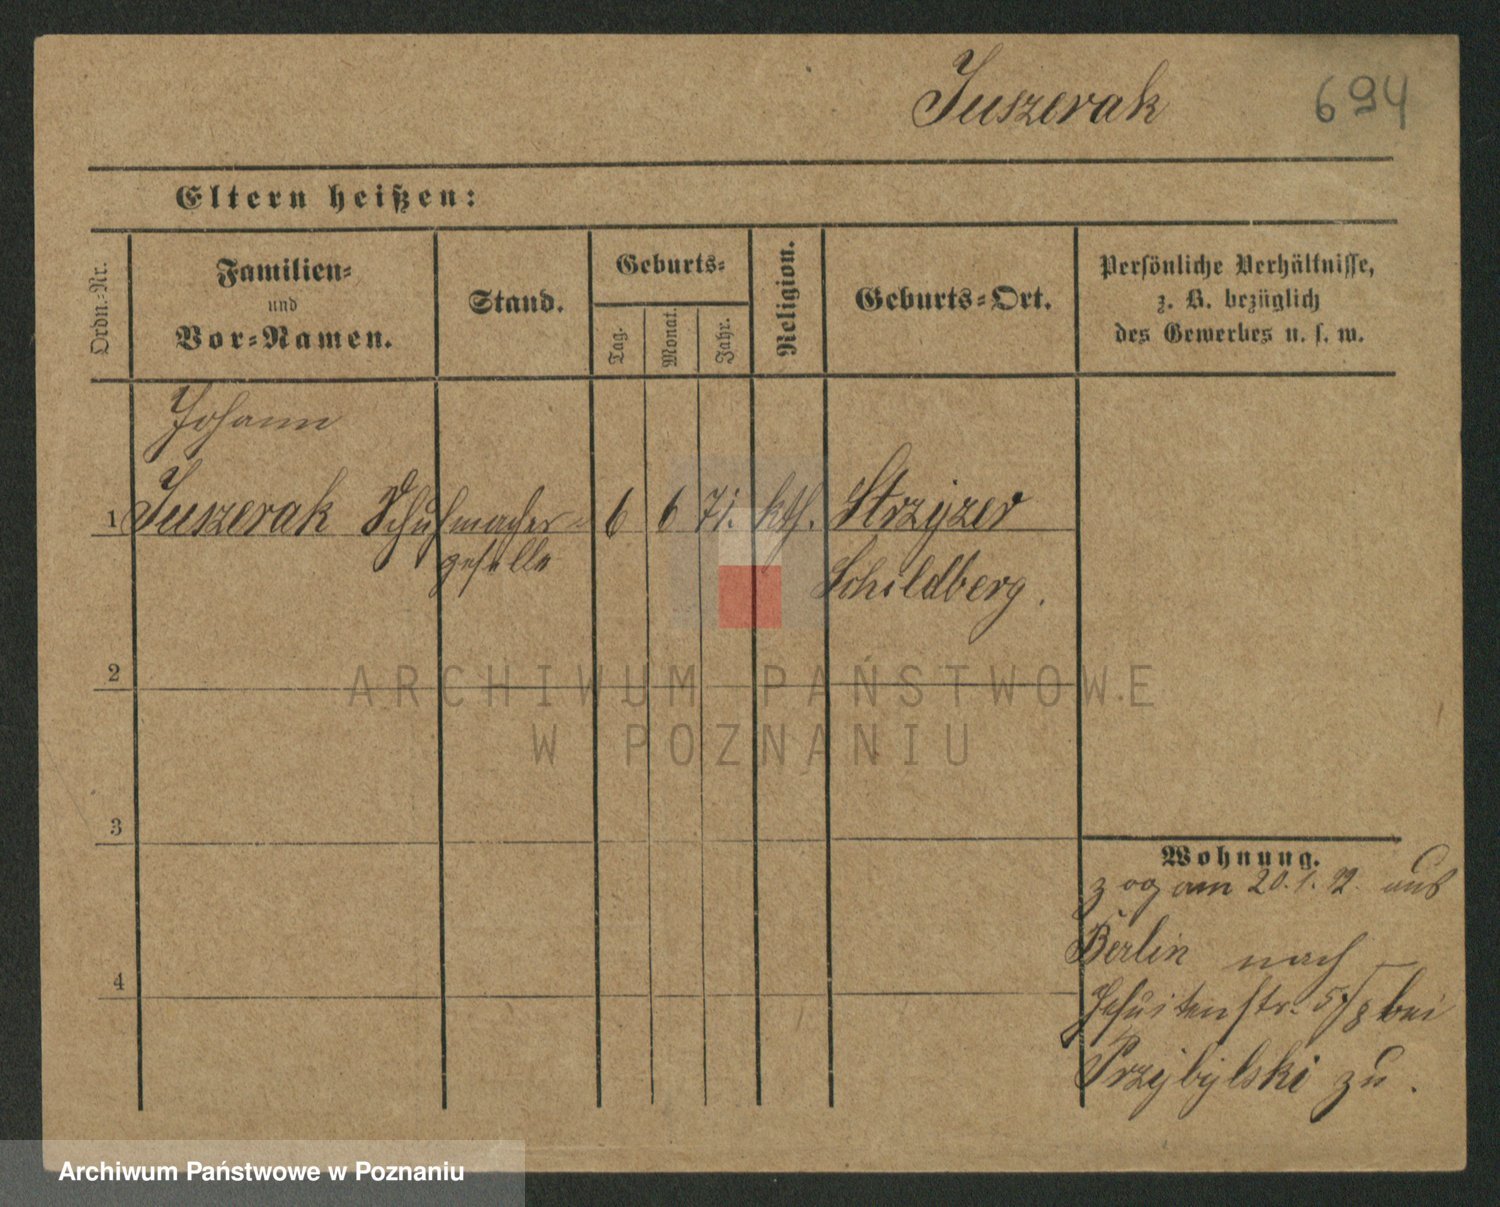 Juszerak 694
Eltern heißen:
Ordn.-Nr.
Familien-
und
Vor-Namen.
Stand.
Geburts-
Tag.
Monat.
Jahr.
Religion.
Geburts-Ort.
Persönliche Verhältnisse,
z. B. bezüglich
des Gewerbes u. s. w.
Johann
1 Juszerak Schuhmacher- 6 6 71. kth. Strzyzew
geselle
Schildberg.
2
ARCHIWUM PAŃSTWOWE
W POZNANIU
3
Wohnung.
zog am 20.1.92. aus
Berlin nach
4
Jesuitenstr. 5/8 bei
Przybylski zu.
Archiwum Państwowe w Poznaniu